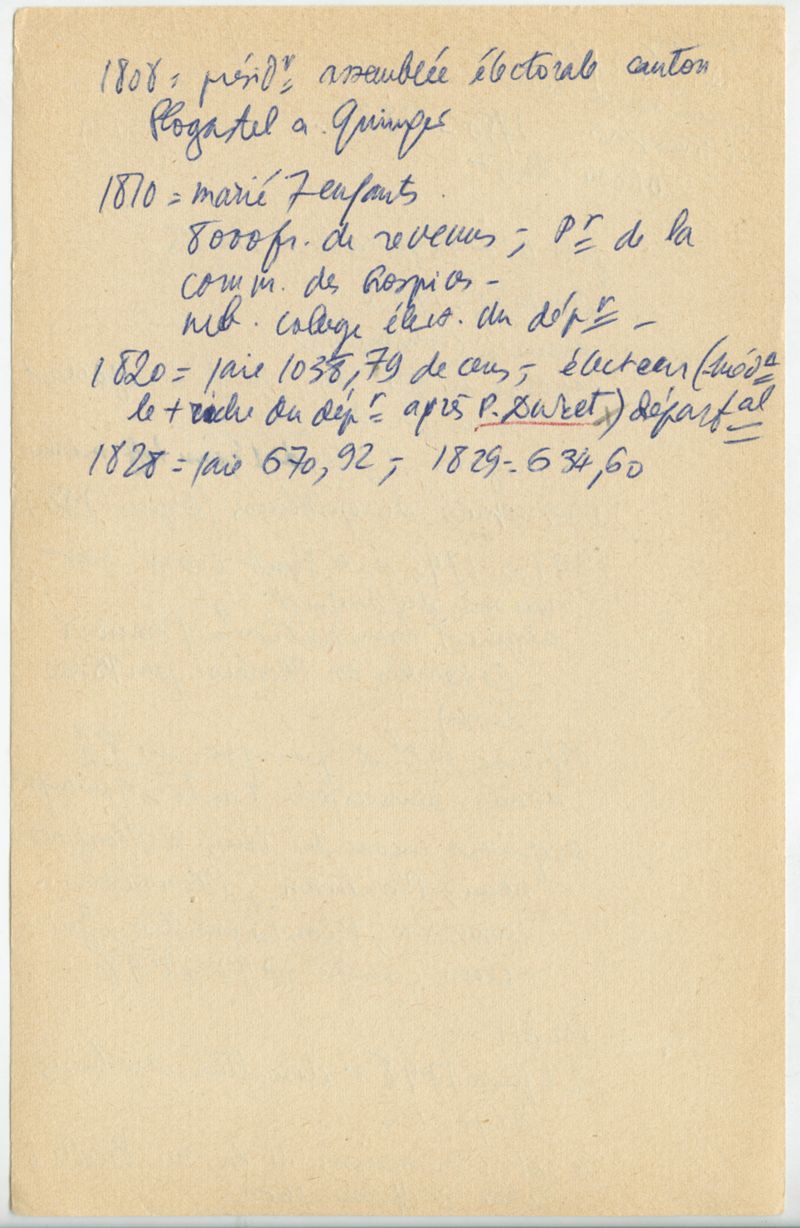 1808 = présidt assemblée électorale canton
Plogastel à Quimper
1810 = marié 7 enfants.
8000 fr. de revenus -, Pt de la
comm. des hospices -
mb. collège élect. du dépt -
1820 = paie 1038,79 de cens -, électeur (
le + riche du dépt après P. Duret) départal
1828 = paie 670,92 -, 1829 = 634,60